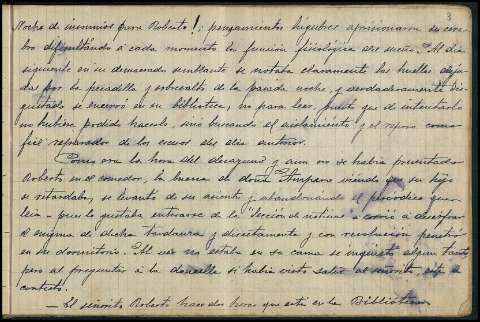 3
Noche de insomnios para Roberto!; pensamientos lúgubres aprisionaron su cere-
bro dificultándo á cada momento la función fisiológica del sueño. Al dia
siguiente en su demacrado semblante se notaba claramente las huellas deja-
das por la pesadilla y sobresalto de la pasada noche, y verdaderamente dis-
gustado se encerró en su biblioteca, no para leer, puesto que de intentarlo
no hubiera podido hacerlo, sino buscando el aislamiento y el reposo como
fiel reparador de los excesos del dia anterior.
Como era la hora del desayuno y aun no se habia presentado
Roberto en el comedor, la buena de doña Amparo viendo que su hijo
se retardaba, se levantó de su asiento y abandonándo el periódico que
leia – pues le gustaba enterarse de la "Sección de noticias" – corrió á descifrar
el enigma de dicha tardanza y directamente y con resolución penetró
en su dormitorio. Al ver no estaba en su cama se inquietó algun tanto,
pero al preguntar á la doncella si habia visto salir al señorito, esta le
contestó.
– El señorito Roberto hace dos horas que está en la Biblioteca